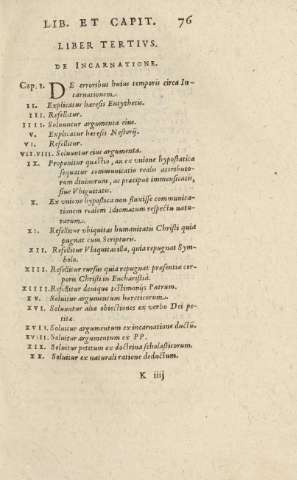 LIB. ET CAPIT. 76
LIBER TERTIVS.
DE INCARNATIONE.
Cap. I. DE erroribus huius temporis circa In-
carnationem.
II. Explicatur hæresis Eutychetis.
III. Refellitur.
IIII. Soluuntur argumenta eius.
V. Explicatur hæresis Nestorij.
VI. Refellitur.
VII. VIII. Soluuntur eius argumenta.
IX. Proponitur quæstio, an ex vnione hypostatica
sequatur communicatio realis attributo-
rum diuinorum, ac præcipuè immensitatis,
siue Vbiquitatis.
X. Ex vnione hypostatica non fluxisse communica-
tionem realem idiomatum respectu natu-
rarum.
XI. Refellitur vbiquitas humanitatis Christi quia
pugnat cum Scripturis.
XII. Refellitur Vbiquitas illa, quia repugnat Sym-
bolo.
XIII. Refellitur rursus quia repugnat præsentiæ cor-
poris Christi in Eucharistia.
XIIII. Refellitur denique testimonijs Patrum.
XV. Soluitur argumentum hæreticorum.
XVI. Soluuntur aliæ obiectiones ex verbo Dei pe-
titæ.
XVII. Soluitur argumentum ex incarnatione ductū.
XVIII. Soluitur argumentum ex PP.
XIX. Soluitur petitum ex doctrina scholasticorum.
XX. Soluitur ex naturali ratione deductum.
K iiij